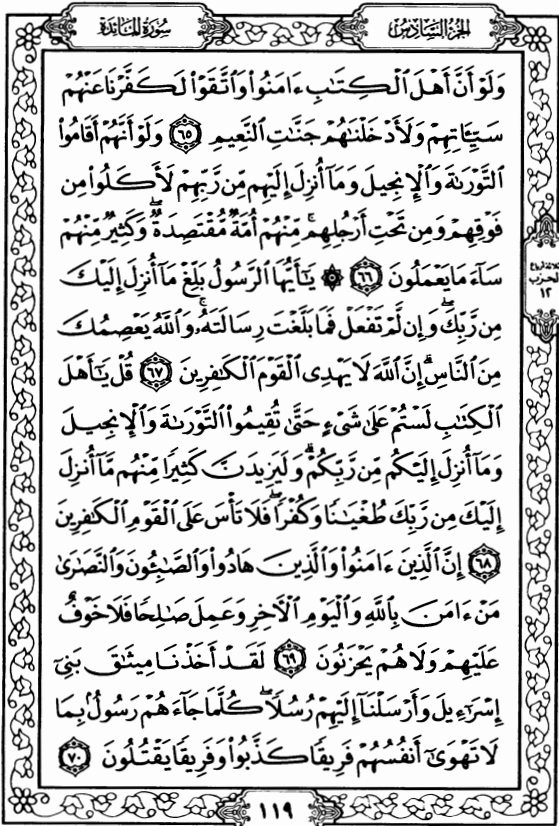 سُورَةُ المَائدَة
الجزءُ السَّادِسُ
وَلَوْ أَنَّ أَهْلَ ٱلْكِتَٰبِ ءَامَنُوا۟ وَٱتَّقَوْا۟ لَكَفَّرْنَا عَنْهُمْ
سَيِّـَٔاتِهِمْ وَلَأَدْخَلْنَٰهُمْ جَنَّٰتِ ٱلنَّعِيمِ ٦٥ وَلَوْ أَنَّهُمْ أَقَامُوا۟
ٱلتَّوْرَىٰةَ وَٱلْإِنجِيلَ وَمَآ أُنزِلَ إِلَيْهِم مِّن رَّبِّهِمْ لَأَكَلُوا۟ مِن
فَوْقِهِمْ وَمِن تَحْتِ أَرْجُلِهِم ۚ مِّنْهُمْ أُمَّةٌ مُّقْتَصِدَةٌ ۖ وَكَثِيرٌ مِّنْهُمْ
سَآءَ مَا يَعْمَلُونَ ٦٦ ۞ يَٰٓأَيُّهَا ٱلرَّسُولُ بَلِّغْ مَآ أُنزِلَ إِلَيْكَ
مِن رَّبِّكَ ۖ وَإِن لَّمْ تَفْعَلْ فَمَا بَلَّغْتَ رِسَالَتَهُۥ ۚ وَٱللَّهُ يَعْصِمُكَ
مِنَ ٱلنَّاسِ ۗ إِنَّ ٱللَّهَ لَا يَهْدِى ٱلْقَوْمَ ٱلْكَٰفِرِينَ ٦٧ قُلْ يَٰٓأَهْلَ
ٱلْكِتَٰبِ لَسْتُمْ عَلَىٰ شَىْءٍ حَتَّىٰ تُقِيمُوا۟ ٱلتَّوْرَىٰةَ وَٱلْإِنجِيلَ
وَمَآ أُنزِلَ إِلَيْكُم مِّن رَّبِّكُمْ ۗ وَلَيَزِيدَنَّ كَثِيرًا مِّنْهُم مَّآ أُنزِلَ
إِلَيْكَ مِن رَّبِّكَ طُغْيَٰنًا وَكُفْرًا ۖ فَلَا تَأْسَ عَلَى ٱلْقَوْمِ ٱلْكَٰفِرِينَ
٦٨ إِنَّ ٱلَّذِينَ ءَامَنُوا۟ وَٱلَّذِينَ هَادُوا۟ وَٱلصَّٰبِـُٔونَ وَٱلنَّصَٰرَىٰ
مَنْ ءَامَنَ بِٱللَّهِ وَٱلْيَوْمِ ٱلْءَاخِرِ وَعَمِلَ صَٰلِحًا فَلَا خَوْفٌ
عَلَيْهِمْ وَلَا هُمْ يَحْزَنُونَ ٦٩ لَقَدْ أَخَذْنَا مِيثَٰقَ بَنِىٓ
إِسْرَٰٓءِيلَ وَأَرْسَلْنَآ إِلَيْهِمْ رُسُلًا ۖ كُلَّمَا جَآءَهُمْ رَسُولٌۢ بِمَا
لَا تَهْوَىٰٓ أَنفُسُهُمْ فَرِيقًا كَذَّبُوا۟ وَفَرِيقًا يَقْتُلُونَ ٧٠
الحزب
١٢
١١٩